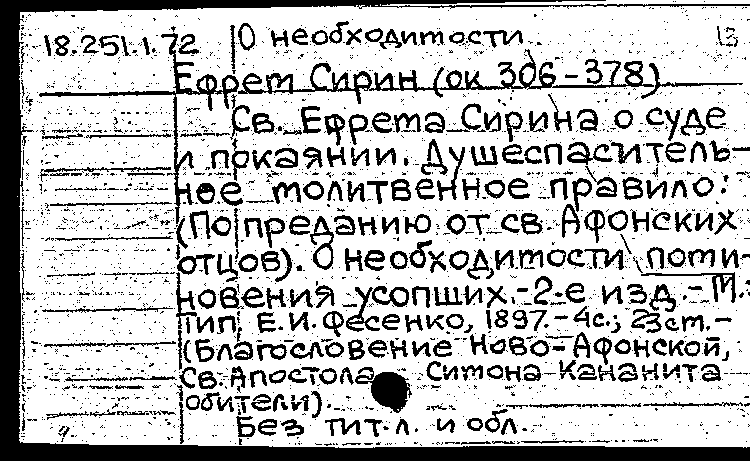 18.251.1.72 О необходимости 13
Ефрем Сирин (ок 306-378)
Св. Ефрема Сирина о суде
и покаянии. Душеспаситель-
ное молитвенное правило:
(По преданию от св. Афонских
отцов). О необходимости поми-
новения усопших.-2-е изд.- М.:
Тип. Е.И. Фесенко, 1897.-4с.; 23см.-
(Благословение Ново-Афонской,
Св. Апостола Симона Кананита
обители).
Без тит.л. и обл.